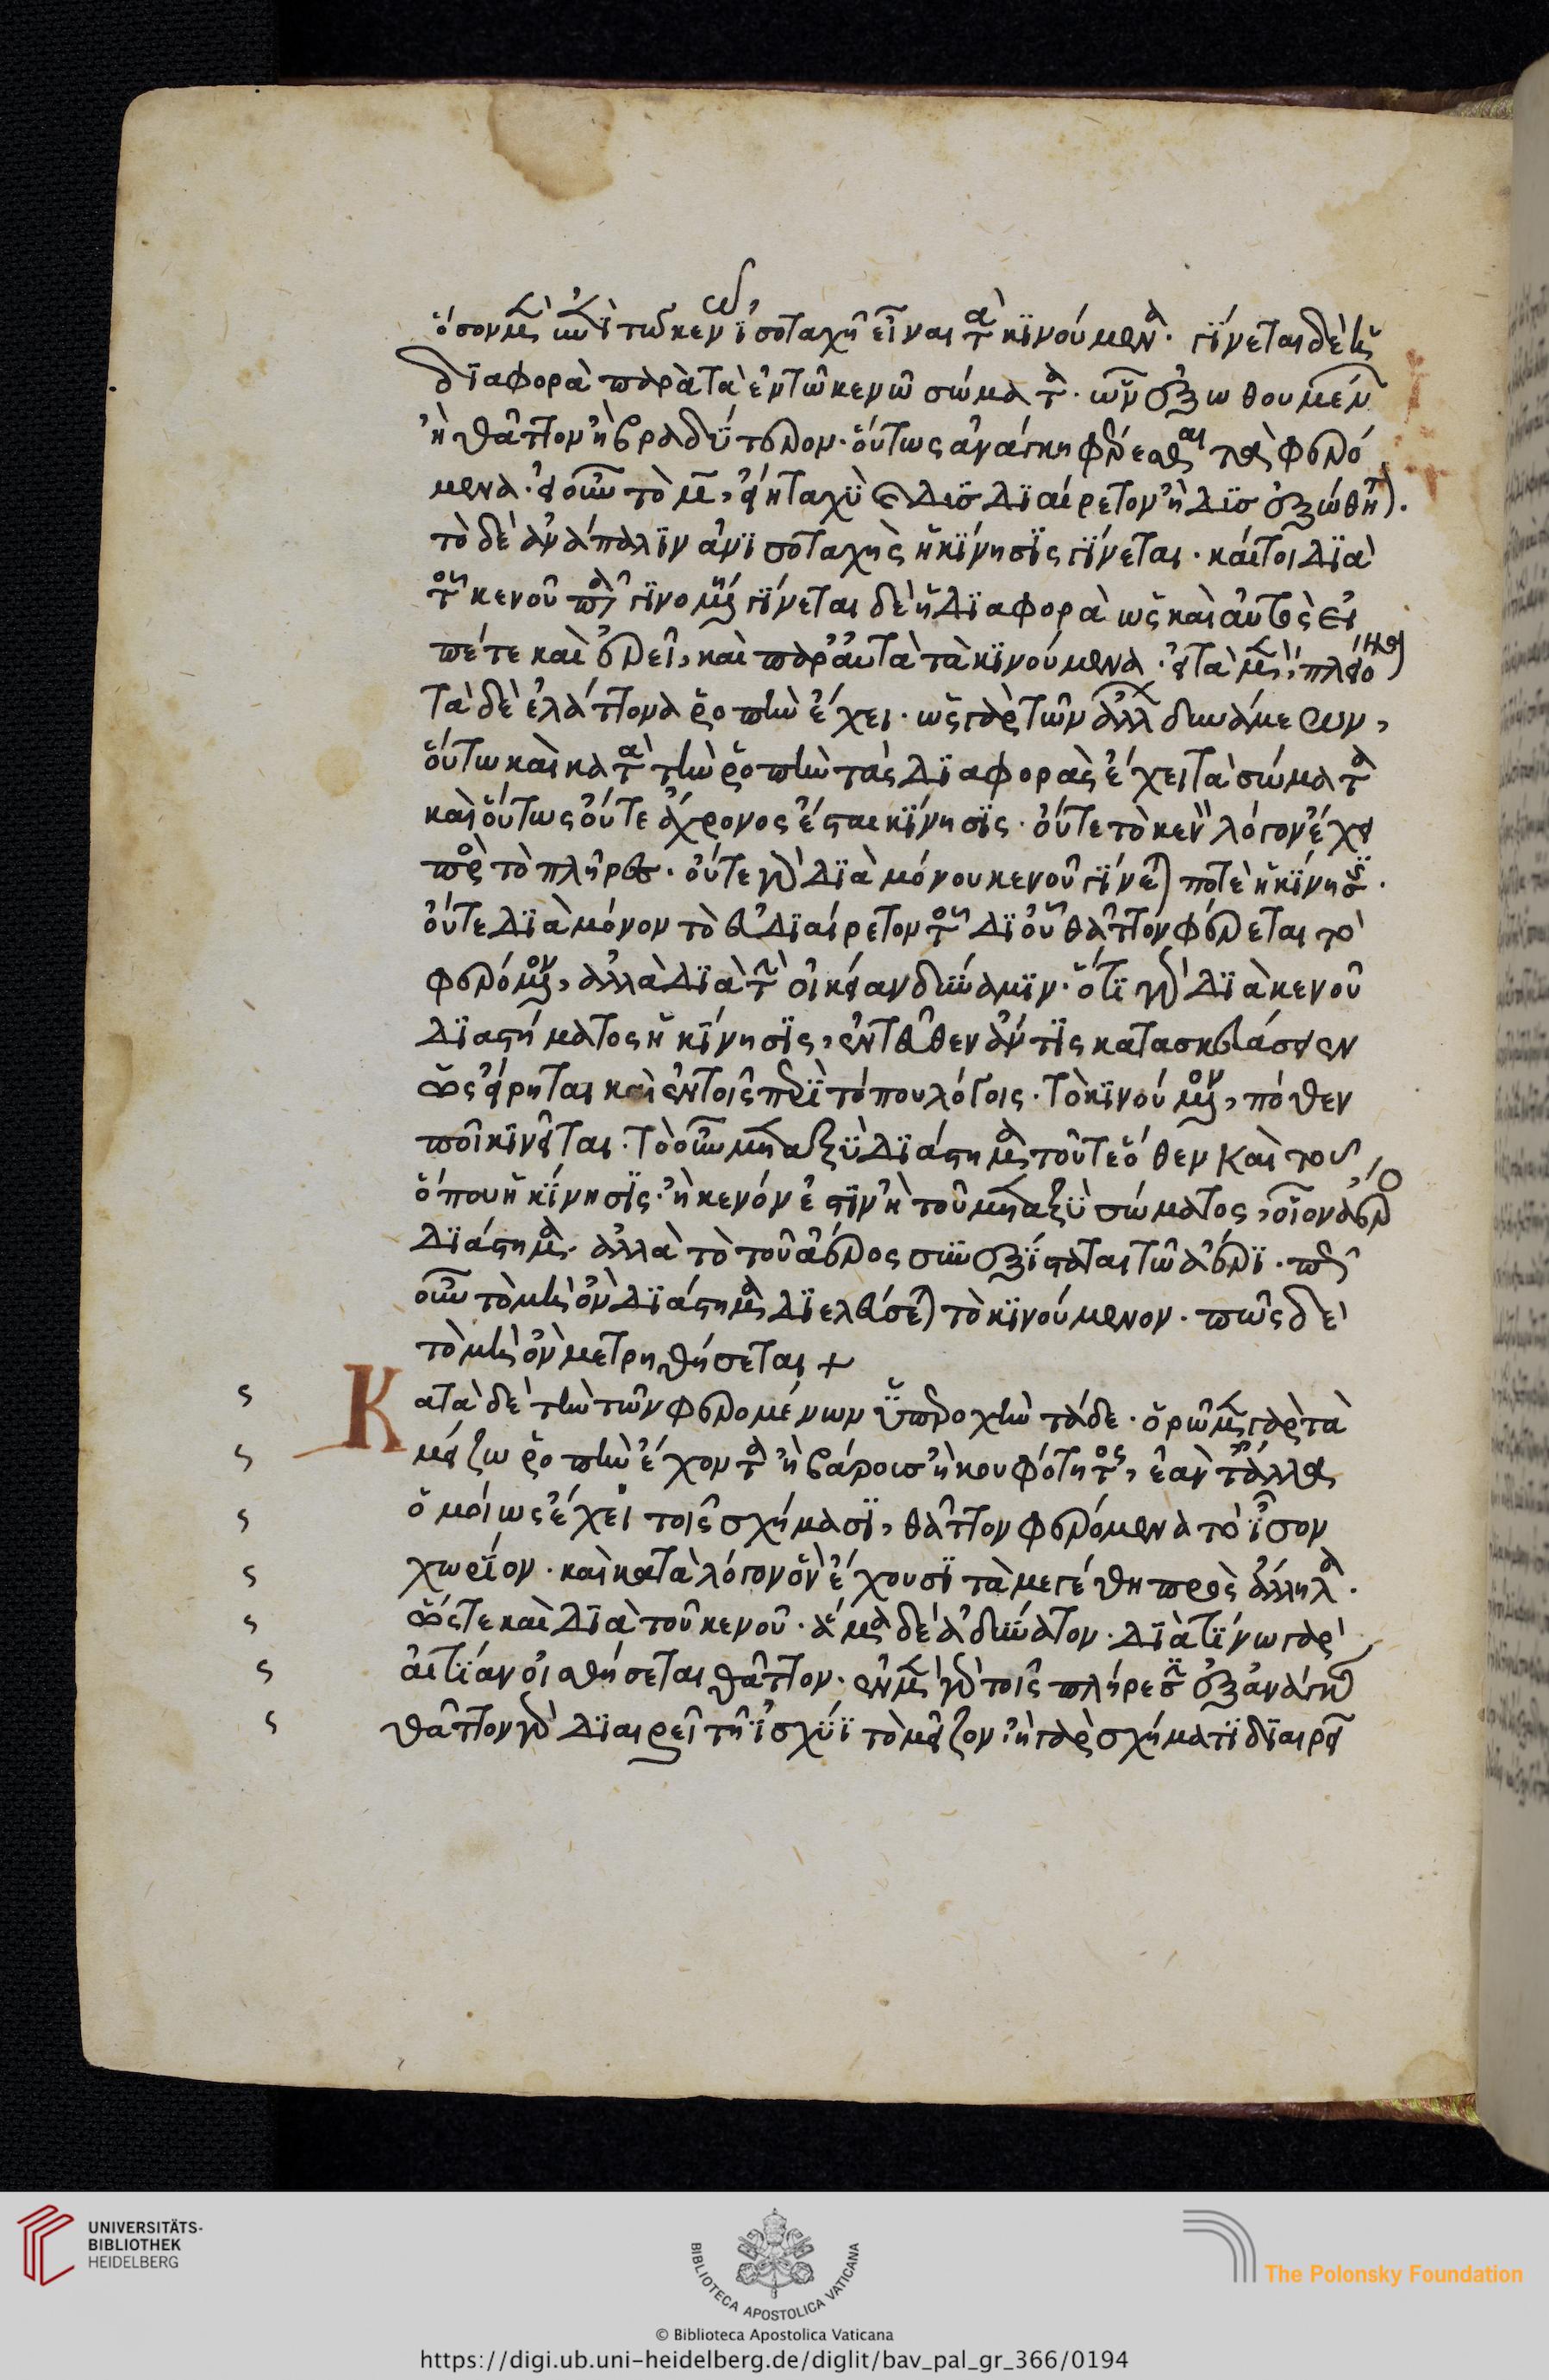 ὅσον μὲν ἐπὶ τῶ κενῶ, ἰσοταχῆ εἶναι τὰ κινούμενα. γίνεται δὲ ἡ
διαφορὰ παρὰ τὰ ἐν τῶ κενῶ σώματα. ὧν ἐξωθουμένων
ἢ θᾶττον ἢ βραδύτερον. οὕτως ἀνάγκη φέρεσθαι τὰ φερό
μενα. εἰ οὖν τὸ μὲν, εἴη ταχὺ εὐδιαίρετον ἢ
τὸ δὲ ἀνάπαλιν ἀνισοταχὴς ἡ κίνησις γίνεται. καίτοι διὰ
τοῦ κενοῦ γινομένη γίνεται δὲ ἡ διαφορὰ ὡς καὶ αὐτὸς εἶ
πέ τε καὶ ἐρεῖ, καὶ παρ' αὐτὰ τὰ κινούμενα. εἰ τὰ μὲν πλείονα
τὰ δὲ ἐλάττονα ῥοπὴν ἔχει. ὡς γὰρ τῶν ἄλλων δυνάμεων,
οὕτω καὶ κατὰ τὴν ῥοπὴν τὰς διαφορὰς ἔχει τὰ σώματα
καὶ οὕτως οὔτε ἄχρονος ἔσται κίνησις. οὔτε τὸ κενὸν λόγον ἔχει
πρὸς τὸ πλῆρες. οὔτε γὰρ διὰ μόνου κενοῦ γίνεται ποτὲ ἡ κίνησις.
οὔτε διὰ μόνον τὸ εὐδιαίρετον τοῦ δι' οὗ θᾶττον φέρεται τὸ
φερόμενον, ἀλλὰ διὰ τὴν οἰκείαν δύναμιν. ὅτι γὰρ διὰ κενοῦ
διαστήματος ἡ κίνησις, ἐντεῦθεν ἄν τις κατασκευάσειεν
ὡς εἴρηται καὶ ἐν τοῖς περὶ τόπου λόγοις. τὸ κινούμενον, πόθεν
ποῖ κινεῖται. τὸ οὖν μεταξὺ διάστημα τοῦ τε ὅθεν καὶ τοῦ
ὅπου ἡ κίνησις. ἢ κενόν ἐστιν ἢ τοῦ μεταξὺ σώματος, οἷον ἀέρος
διάστημα. ἀλλὰ τὸ τοῦ ἀέρος συνεξίσταται τῶ ἀέρι. πῶς
οὖν τὸ μὴ ὂν διάστημα διελεύσεται τὸ κινούμενον. πῶς δὲ
τὸ μὴ ὂν μετρηθήσεται +
Κατὰ δὲ τὴν τῶν φερομένων ὑπεροχὴν τάδε. ὁρῶμεν γὰρ τὰ
μείζω ῥοπὴν ἔχοντα ἢ βάρους ἢ κουφότητος, ἐὰν τἄλλα
ὁμοίως ἔχει τοῖς σχήμασι, θᾶττον φερόμενα τὸ ἴσον
χωρίον. καὶ κατὰ λόγον ὃν ἔχουσι τὰ μεγέθη πρὸς ἄλληλα.
ὥστε καὶ διὰ τοῦ κενοῦ. ἀλλὰ δὲ ἀδύνατον. διὰ τίνα γὰρ
αἰτίαν οἰσθήσεται θᾶττον. ἐν μὲν γὰρ τοῖς πλήρεσιν ἐξ ἀνάγκης
θᾶττον γὰρ διαιρεῖ τῇ ἰσχύϊ τὸ μεῖζον. ἢ γὰρ σχήματι διαιρεῖ
UNIVERSITÄTS-
BIBLIOTHEK
HEIDELBERG
BIBLIOTECA APOSTOLICA VATICANA
The Polonsky Foundation
© Biblioteca Apostolica Vaticana
https://digi.ub.uni-heidelberg.de/diglit/bav_pal_gr_366/0194